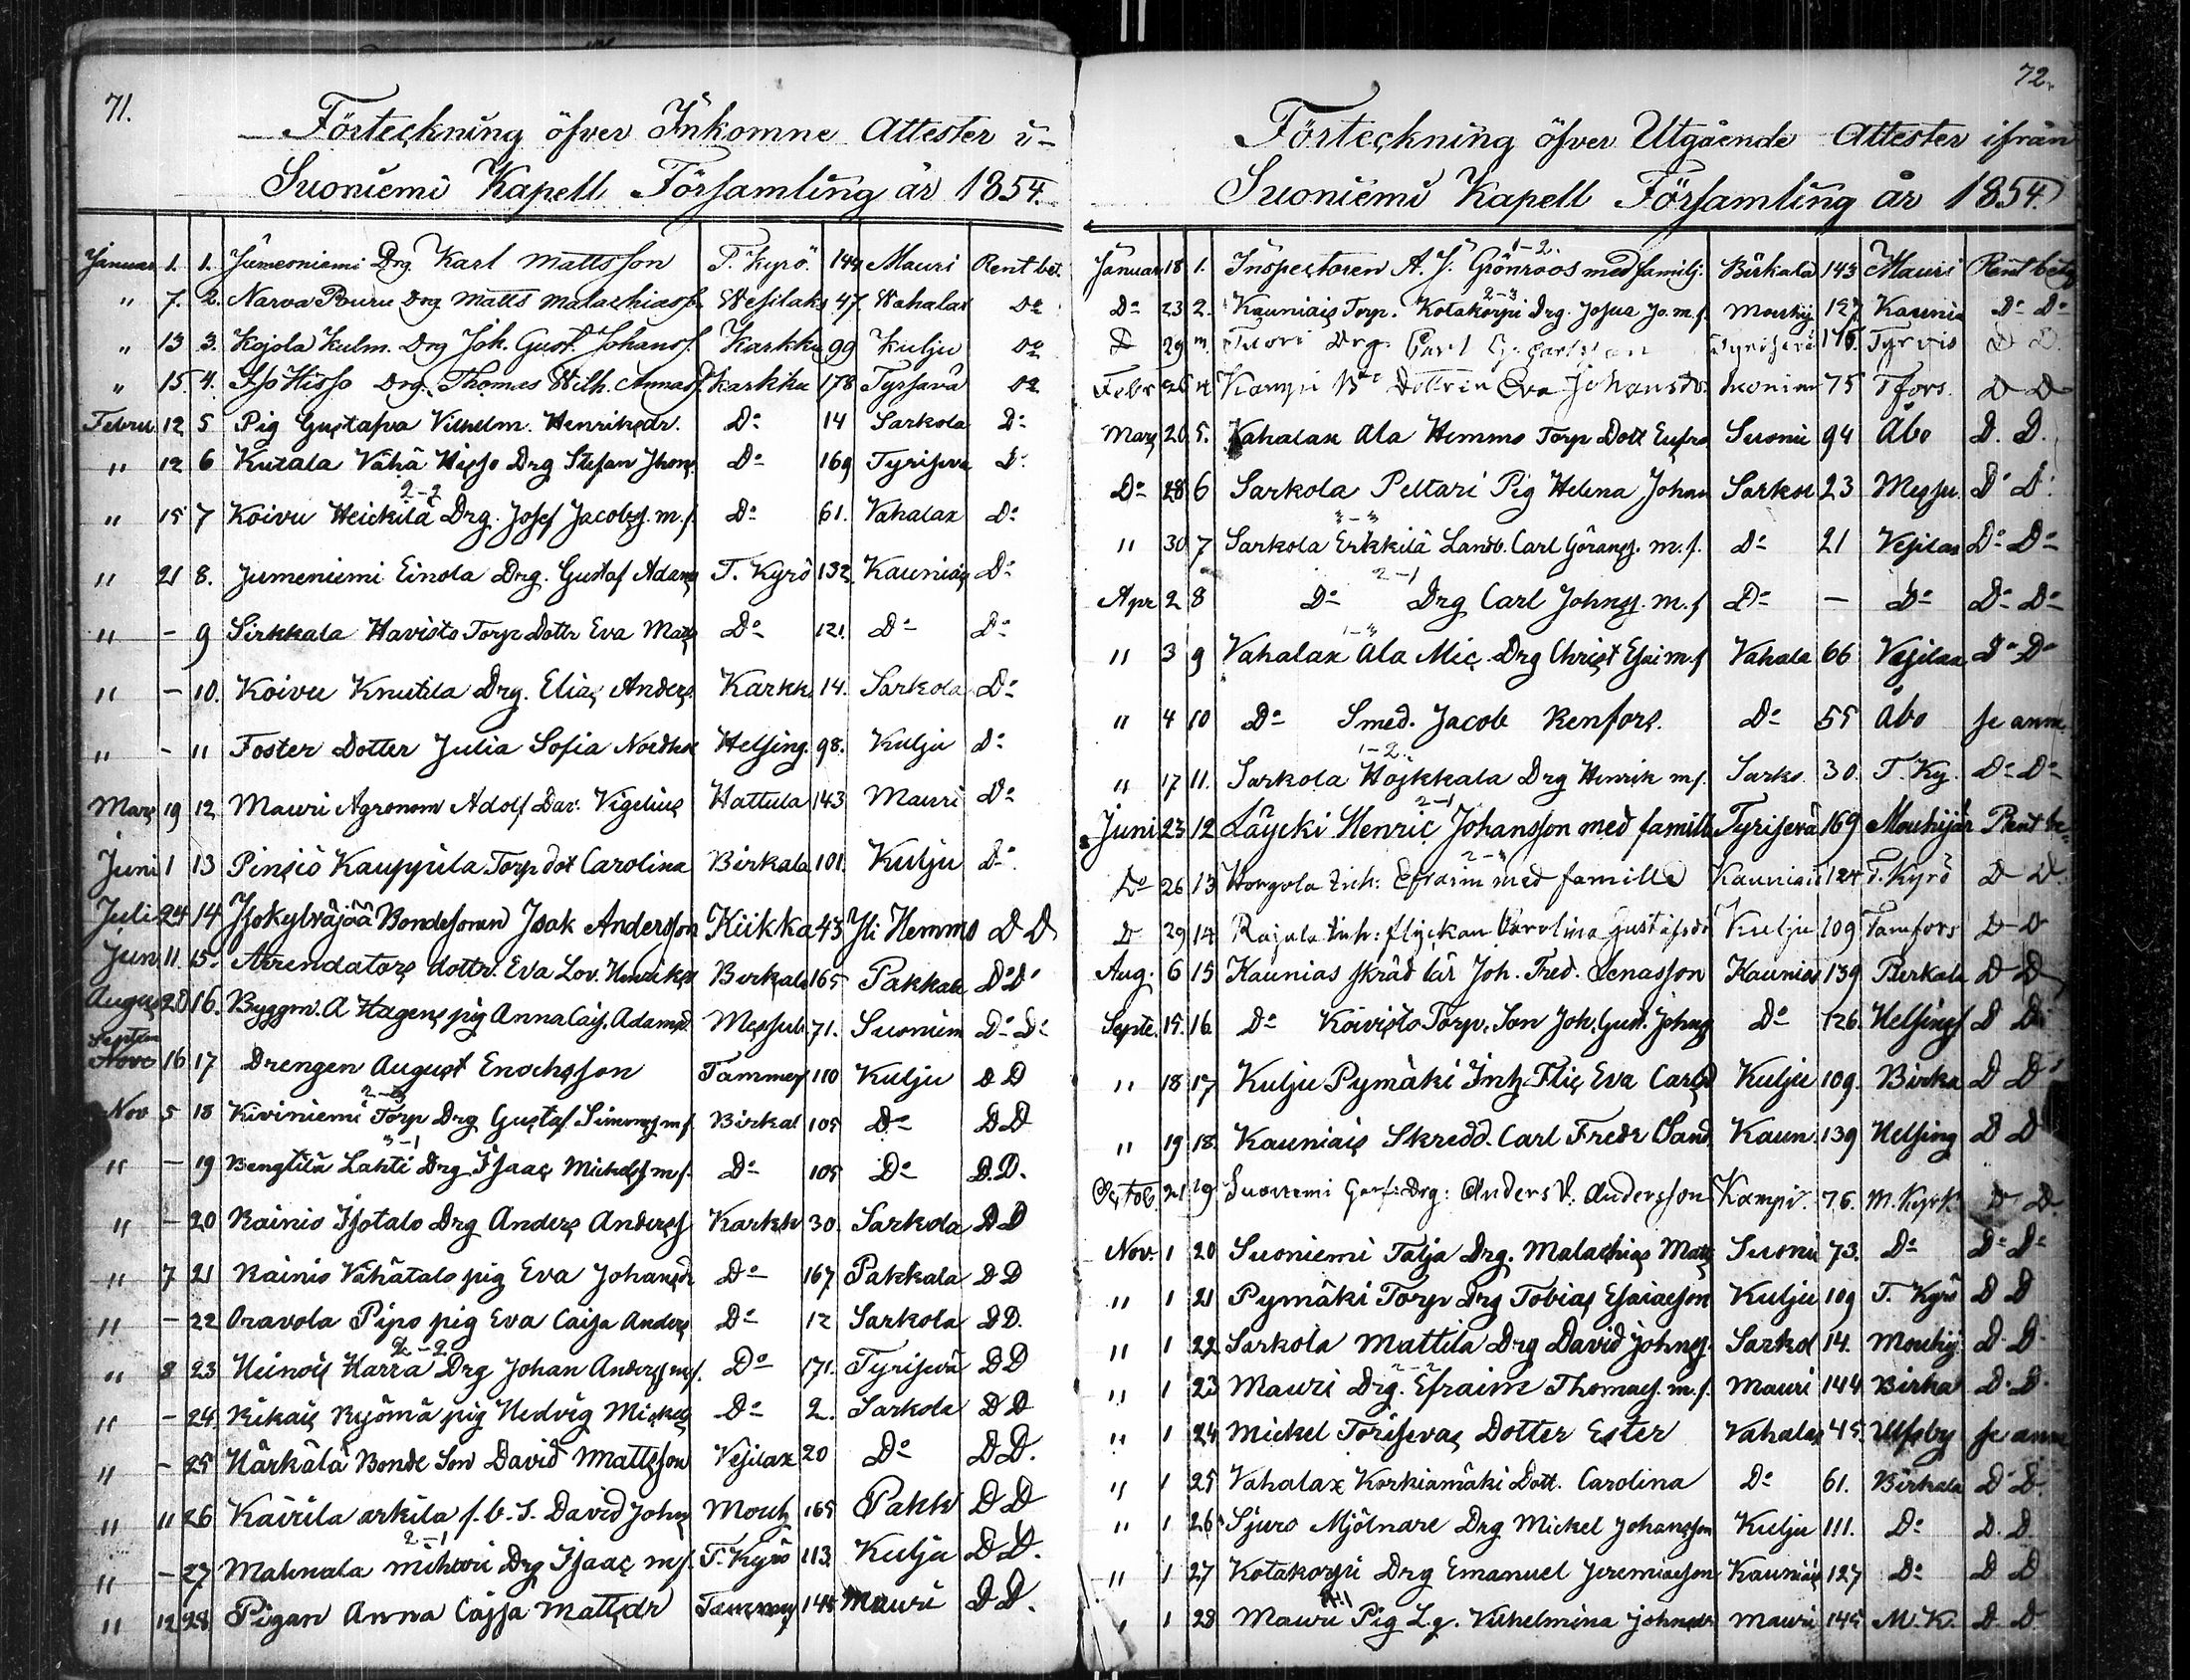 71.
Förteckning öfver Inkomne Attester i
Suoniemi Kapell Församling år 1854.
Januar 1. 1. Jumeoniemi Drg Karl Mattsson T. Kyrö. 144 Mauri Rent bet.
" 7. 2. Narva Rouru Drg Matts Malachiass. Wesilaks 47. Wahalax Do
" 13 3. Kojola Kulm. Drg Joh. Gust. Johanss. Karkku 99 Kulju Do
" 15 4. Iso Hisso Drg. Thomas Wilh. Annass. Karkku 178 Tyrsävä Do
Febru 12 5 Pig Gustafva Vilhelm. Henriksdr. Do 14 Sarkola Do
" 12 6 Kutala Vähä Hisso Drg Stefan Jhons. Do 169 Tyriseva Do
2-2
" 15 7 Koivu Heickilä Drg. Josef Jacobss. m.f. Do 61. Vahalax Do
" 21 8. Jumeniemi Einola Drg. Gustaf Adams T. Kyrö 132 Kauniais Do
" - 9 Sirkkala Havisto Torp Dottr Eva Matts Do 121. Do Do
" - 10. Koivu Knutila Drg. Elias Anders. Karkk 14. Sarkola Do
" - 11 Foster Dotter Julia Sofia Helsing. 98. Kulju Do
Mars 19 12 Mauri Agronom Adolf Dav. Vigelius Hattula 143 Mauri Do
Juni 1 13 Pinsiö Kauppila Torp dot Carolina Birkala 101. Kulju Do
Juli 24 14 Isokylväjää Bondesonen Isak Andersson Kiikka 43 Yli Hemmo D D
Jun 11 15. Arrendators dottr. Eva Lov. Henriks Birkala 165 Pakkala Do Do
August 28 16. Byggm. A Hagens pig Anna Cais. Adamsd. Messub. 71. Suoniem Do Do
Septem
Nove 16 17 Drengen August Enochsson Tammer 110 Kulju D D
Nov 5 18 Kiviniemi Torp Drg Gustaf Simonss m.f. Birkal 105 Do D D
3-1
" - 19 Bengtilä Lahti Drg Isaac Michelss m.f. Do 105 Do D.D.
" - 20 Rainio Isotalo Drg Anders Anderss Karkk 30. Sarkola D D
" 7 21 Rainio Vähätalo pig Eva Johansdr Do 167 Pakkala D D
" - 22 Oravola Pipo pig Eva Caisa Anders Do 12 Sarkola D D.
2-2
" 8 23 Heinois Karra Drg Johan Anderss m.f. Do 171. Tyrisevä D D
" - 24. Rikais Ryömä pig Hedvig Mickels Do 2. Sarkola D D
" - 25 Härkälä Bonde Son David Mattsson Vesilax 20 Do D D.
" 11 26 Kairila arkila f.b.S. David Johns Mouh 165 Pakk D D
2-1
" - 27 Mahnala Drg Isaac m.f. T. Kyrö 113 Kulju D D.
" 12 28 Pigan Anna Cajsa Mattsdr 145 Mauri D D.
72.
Förteckning öfver Utgående Attester ifrån
Suoniemi Kapell Församling år 1854.
1-2.
Januar 18 1. Inspectoren A. J. Grönroos med familj. Birkala 143 Mauri Rent betyg
2-3
Do 23 2. Kauniais Torp. Kotakorpi Drg. Josua Jo. m.f. Mouhij 127 Kaunia Do Do
D 29 Tuori Drg. Tyrvis D D.
Febr 26 4 Kampi Dottren Eva Johansdr. Suoniem 75 Tfors. D D
Mars 20 5. Vahalax Ala Hemmo Torp Dott Eufro Suoni 94 Åbo D. D.
Do 28 6 Sarkola Peltari Pig Helena Johan Sarkol 23 Messu. D D.
3-3
" 30 7 Sarkola Erkkilä Landb. Carl Göranss. m.f. Do 21 Vesilax Do Do
2-1
Apr 2 8 Do Drg Carl Johnss. m.f Do - Do Do Do
1-3
" 3 9 Vahalax Ala Mic. Drg Christ Esai m.f Vahala 66 Vesilax Do Do
" 4 10 Do Smed. Jacob Renfors. Do 55 Åbo se anm.
1-2.
" 17 11. Sarkola Höjkkala Drg Henrik m.f. Sarko. 30. T. Ky. Do Do
2-1
Juni 23 12 Läycki Henric Johansson med famill Tyrisevä 169 Mouhijär Rent be
2-3
Do 26 13 Horgola Inh: Efraim med famille Kauniais 124 T. Kyrö D D.
D 29 14 Rajala Inh: flickan Carolina Gustafsdr Kulju 109 Tamfors D D
Aug. 6 15 Kaunias skräd lär Joh. Fred. Jenasson Kaunias 139 Birkala D D
Septe. 15. 16. Do Koivisto Torp. Son Joh. Gust. Johns Do 126. Helsingf D Do
" 18 17 Kulju Pymäki Inh. Flic Eva Carlsd Kulju 109. Birka D D
" 19 18. Kauniais Skredd. Carl Fredr Sand Kaun. 139 Helsing D D
Octob. 21 19. Suoniemi Drg: Anders V. Andersson Kampi. 76. M. Kyrk. D D.
Nov. 1 20 Suoniemi Talja Drg. Malachias Matts Suoni 73. Do Do Do
" 1 21 Pymäki Torp Drg Tobias Esaiaeson Kulju 109 T. Kyrö D D
" 1 22 Sarkola Mattila Drg David Johnss. Sarkol 14. Mouhij D. D
2-2
" 1 23 Mauri Drg. Efraim Thomass. m.f. Mauri 144 Birka D. D.
" 1 24 Mickel Torisevas Dotter Ester Vahalax 45. Ulfsby se anm
" 1 25 Vahalax Korkiamäki Dott. Carolina Do 61. Birkala D D.
" 1 26 Sjuro Mjölnare Drg Mickel Johansson Kulju 111. Do D. D.
" 1 27 Kotakorpi Drg Emanuel Jeremiaeson Kauniais 127 Do D D
" 1 28 Mauri Pig L.g. Vilhelmina Johnsdr Mauri 145 M. K. D. D.